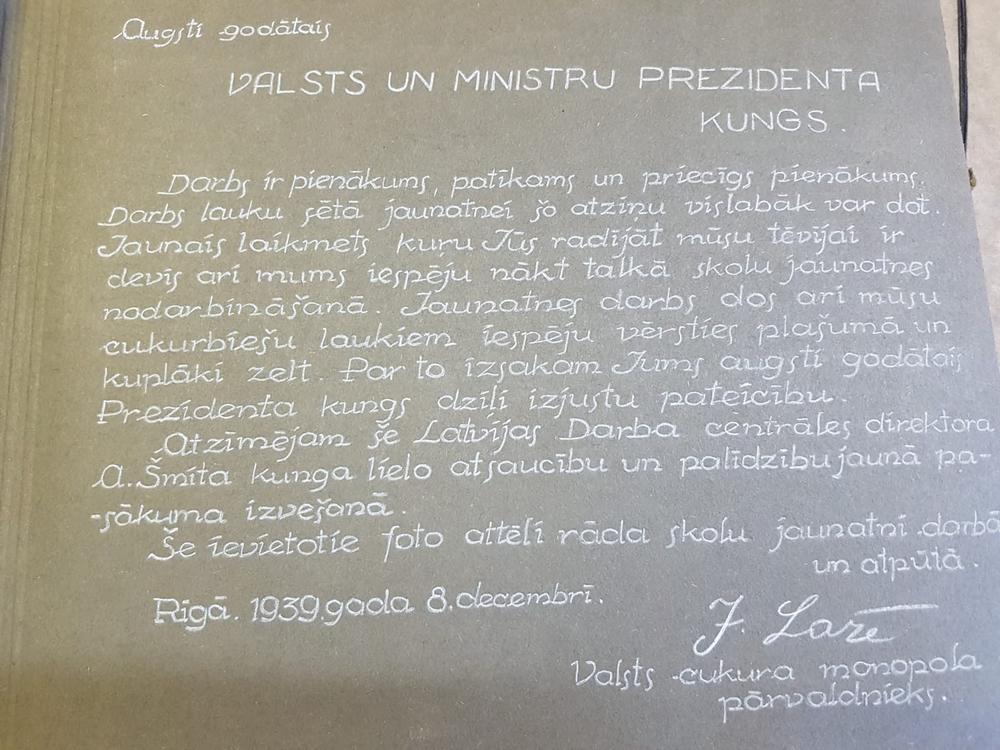 Augsti godātais
VALSTS UN MINISTRU PREZIDENTA
KUNGS.
Darbs ir pienākums, patīkams un priecīgs pienākums.
Darbs lauku sētā jaunatnei šo atziņu vislabāk var dot.
Jaunais laikmets kuŗu Jūs radījāt mūsu tēvijai ir
devis arī mums iespēju nākt talkā skolu jaunatnes
nodarbināšanā. Jaunatnes darbs dos arī mūsu
cukurbiešu laukiem iespēju vērsties plašumā un
kuplāki zelt. Par to izsakam Jums augsti godātais
Prezidenta kungs dziļi izjustu pateicību.
Atzīmējam še Latvijas Darba centrāles direktora
A. Šmita kunga lielo atsaucību un palīdzību jaunā pa-
-sākuma izvešanā.
Še ievietotie foto attēli rāda skolu jaunatni darbā
un atpūtā.
Rīgā. 1939. gada 8. decembrī.
J. Laze
Valsts cukura monopola
pārvaldnieks.